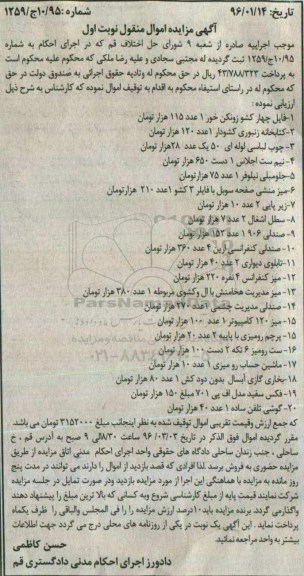 تاریخ: ۹۶/۰۱/۱۴ شماره: ۱۰/۹۵ج/۱۲۵۹
آگهی مزایده اموال منقول نوبت اول
موجب اجراییه صادره از شعبه ۹ شورای حل اختلاف قم که در اجرای احکام به شماره
۱۰/۹۵ج/۱۲۵۹ ثبت گردیده له مجتبی سجادی و علیه رضا ملکی که محکوم علیه محکوم است
به پرداخت ۴۳/۷۸۸/۳۲۲ ریال در حق محکوم له وثادیه حقوق اجرائی به صندوق دولت در حق
که محکوم له در راستای استیفاء محکوم به اقدام به توقیف اموال نموده که کارشناس به شرح ذیل
ارزیابی نموده:
۱-فایل چهار کشو زونکن خور ۱ عدد ۱۱۵ هزار تومان
۲-کتابخانه زنبوری کشودار ۱عدد ۱۲۰ هزار تومان
۳-چوب لباسی لوله ای ۵۰ یک عدد ۲۸هزار تومان
۴-نیم ست اجلاس ۱ دست ۶۵۰ هزار تومان
۵-جلومبلی نیلوفر ۱ عدد ۷۵ هزار تومان
۶-میز منشی صفحه سوبل با فایلر ۳ کشو ۱عدد ۲۱۰ هزار تومان
۷-زیر پایی ۲ عدد ۱۰ هزار تومان
۸-سطل اشغال ۲ عدد ۷ هزار تومان
۹-صندلی ۹۰۶ ۱ عدد ۱۵۲ هزار تومان
۱۰-صندلی کنفرانسی آرین ۴ عدد ۳۶۰ هزار تومان
۱۱-تابلوی دیواری ۲ عدد ۴۰ هزار تومان
۱۲-میز کنفرانس ۴ نفره ۲۲۰ هزار تومان
۱۳-میز مدیریت هخامنش با ال و کشوی مربوطه ۱ عدد ۳۸۰ هزار تومان
۱۴-صندلی مدیریت چشمی ۱عدد ۲۷۰ هزار تومان
۱۵-میز ۱۲۰ کامپیوتر ۱ عدد ۱۰۰ هزار تومان
۱۵-پرچم رومیزی با پایه ۲ عدد ۲۰ هزار تومان
۱۶-ست رومیز ۶ تکه ۲ دست ۱۰۰ هزار تومان
۱۷-ماشین حساب رو میزی ۱ عدد ۱۰ هزار تومان
۱۸-بخاری گازی آبسال بدون دود کش ۱ عدد ۸۰ هزار تومان
۱۹-فکس سفید مدل اف پی ۷۰۱ مبلغ ۱۵۰ هزار تومان
۲۰-گوشی تلفن ساده ۱ عدد ۴۰ هزار تومان
که جمع ارزش وقیمت تقریبی اموال توقیف شده به نظر اینجانب مبلغ ۳۱۵۲۰۰۰ تومان می باشد.
مقرر گردیده اموال فوق الذکر در تاریخ ۹۶/۰۳/۰۳ ساعت ۸/۳۰الی ۹ صبح به آدرس قم ، خ
ساحلی ، جنب زندان ساحلی دادگاه های حقوقی واحد اجرای احکام مدنی اتاق مزایده از طریق
مزایده حضوری به فروش برسد .لذا افرادی که قصد بازدید از اموال را دارند می توانند در مدت پنج
روز مانده به مزایده با هماهنگی این اجرا از مورد مزایده بازدید ودر صورت تمایل در جلسه مزایده
شرکت نمایند قیمت پایه از مبلغ کارشناسی شروع وبه کسانی که بالا ترین مبلغ را پیشنهاد دهند
واگذارمی گردد. برنده مزایده باید ۱۰درصد ارزش مزایده را را فی المجلس والباقی را ظرف یکماه
پرداخت نماید . این آگهی یک نوبت در یکی از روزنامه های محلی درج می گردد جهت اطلاعات
بیشتر به واحد مراجعه نمائید.
حسن کاظمی
دادورز اجرای احکام مدنی دادگستری قم